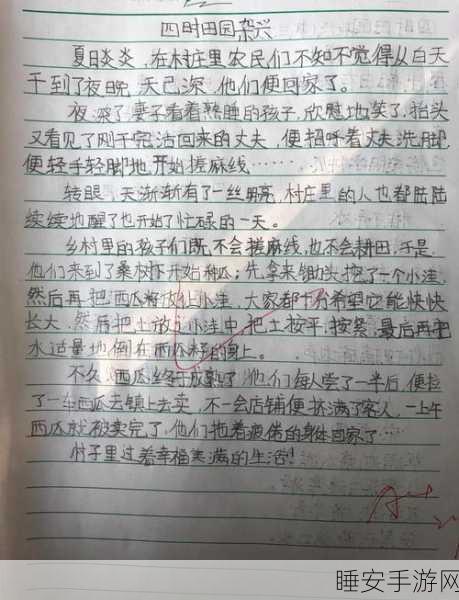 四时田园杂兴
夏日炎炎，在村庄里农民们不知不觉得从白天
干到了夜晚，天已深，他们便回家了。
夜深了，妻子看着熟睡的孩子，欣慰地笑了，抬头
又看见了刚干完活回来的丈夫，便招呼着丈夫洗脚，
便轻手轻脚地开始搓麻线……
转眼，天渐渐有了一丝明亮，村庄里的人也都陆陆
续续地醒了也开始了忙碌的一天。
乡村里的孩子们既不会搓麻线，也不会耕田，于是，
他们来到了桑树下开始种瓜；先拿来锄头挖了一个小洼，
然后再把西瓜籽放让小洼，大家都十分希望它能快快
长大，然后把土放小洼中，把土按平，按紧，最后再把
水适量地倒在西瓜籽的身上。
不久，西瓜终于成熟了，他们每人尝了一半后，便拉
了一车西瓜去镇上去卖，不一会店铺便挤满了客人，一上午
西瓜就被卖完了，他们拖着疲倦的身体回家了…
村子里过着幸福美满的生活！
睡安手游网